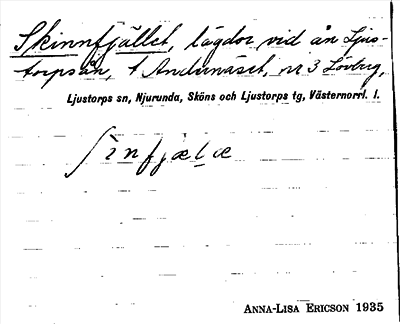 Skinnfjället, lägdor vid ån Ljus-
torpsån, t Andunäset, nr 3 Lövbrg,
Ljustorps sn, Njurunda, Sköns och Ljustorps tg, Västernorrl. l.
ʃìnfjælæ
ANNA-LISA ERICSON 1935